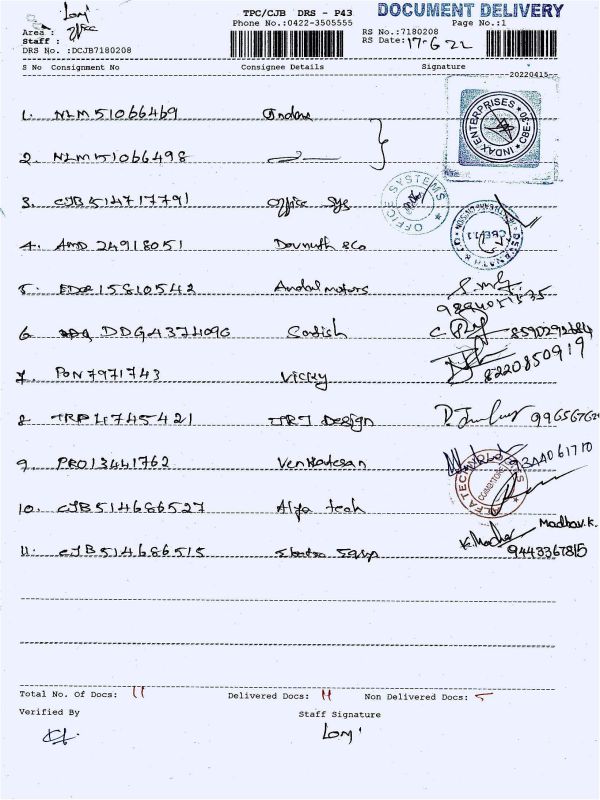 TPC/CJB DRS - P43 DOCUMENT DELIVERY
Area : Phone No.:0422-3505555 Page No.:1
Staff : office RS No.:7180208
DRS No. :DCJB7180208 RS Date:17-6-22
S No Consignment No Consignee Details Signature
20220415
1. NLM51066469 Indax
INDAX ENTERPRISES CBE-30
2. NLM151066498
3. CJB514717791 office sys
OFFICE SYSTEMS
4. AMD 24918051 Devnath & Co
5. 15810542 Andal motors
6 DDG437409G Sadish C.
7. PON7971743 Vicky 8220850919
8 TRP 4745421 Design
9 PRO13441762 Venkatesan 9344061710
ALFA TECH COIMBATORE
10. CJB514686527 Alfa tech
Madhav.K.
11. CJB514686515 Electro Equip 9443367815
Total No. Of Docs: 11 Delivered Docs: 11 Non Delivered Docs:
Verified By Staff Signature